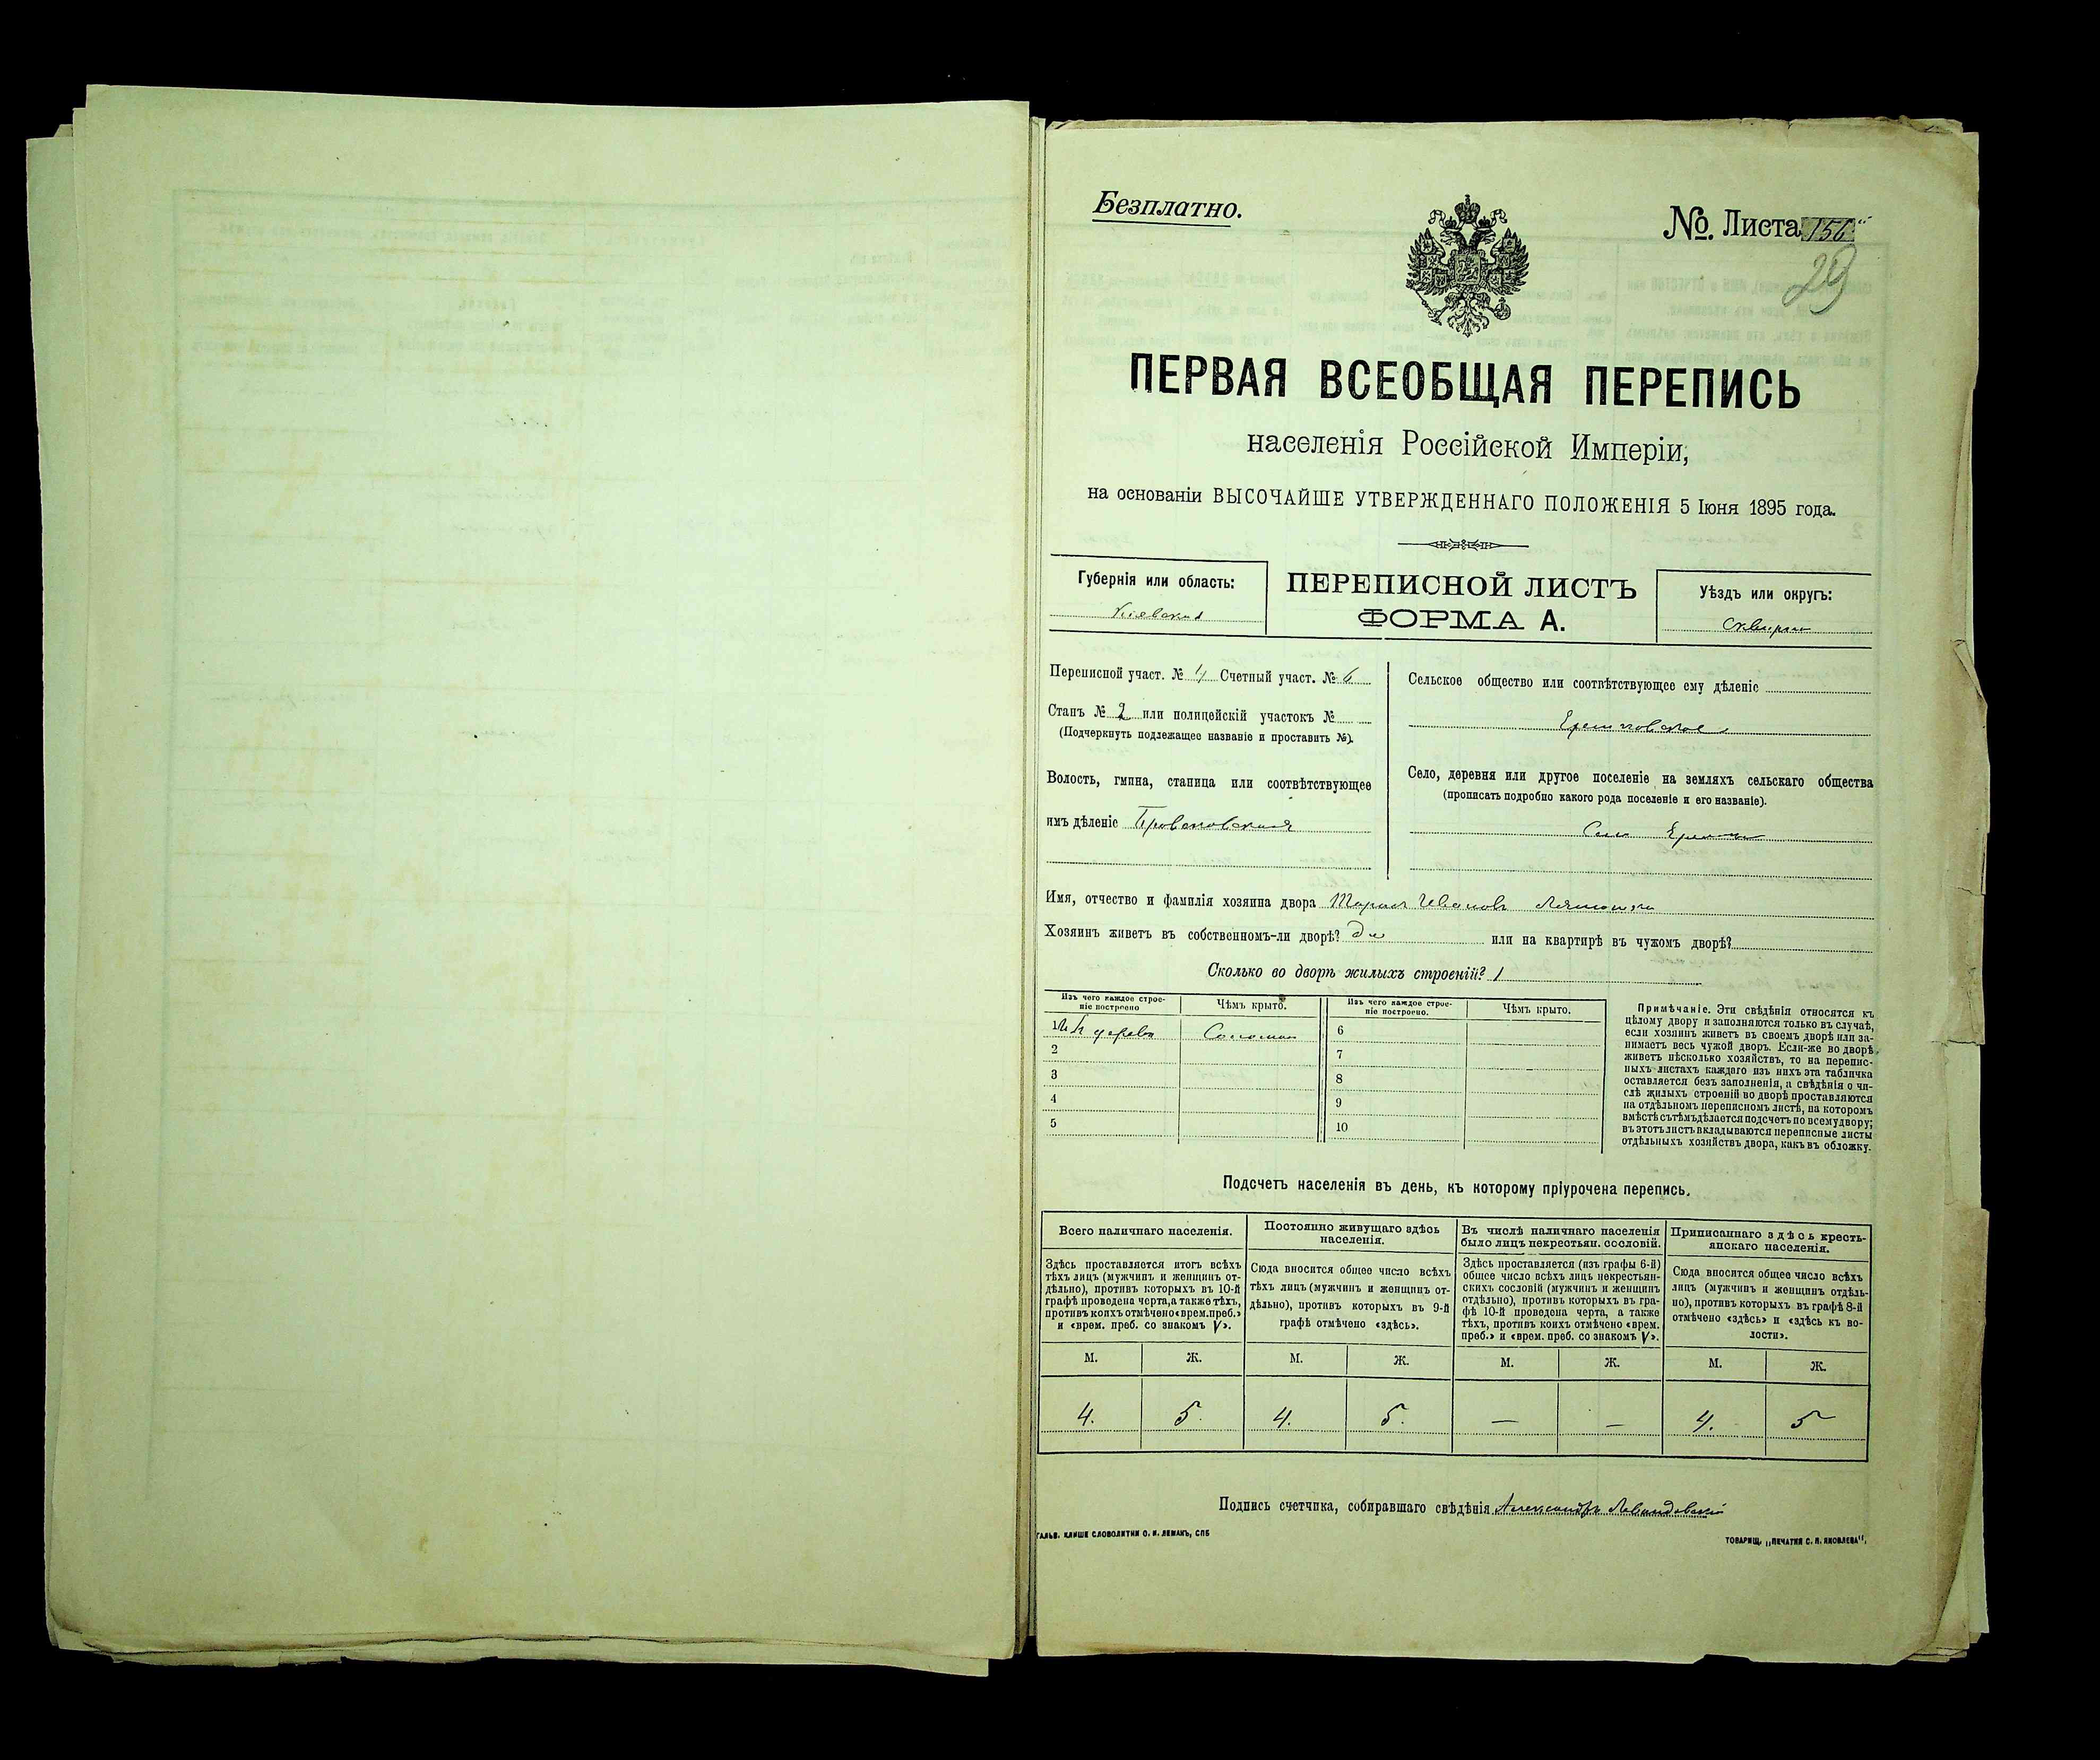 Безплатно.
№. Листа 156
29
ПЕРВАЯ ВСЕОБЩАЯ ПЕРЕПИСЬ
населенія Россійской Имперіи,
на основаніи ВЫСОЧАЙШЕ УТВЕРЖДЕННАГО ПОЛОЖЕНІЯ 5 Іюня 1895 года.
Губернія или область:
Кіевская
ПЕРЕПИСНОЙ ЛИСТЪ
ФОРМА А.
Уѣздъ или округъ:
Сквирск
Переписной участ. № 4 Счетный участ. № 6
Станъ № 2 или полицейскій участокъ №
(Подчеркнуть подлежащее названіе и проставить №).
Волость, гмина, станица или соотвѣтствующее
имъ дѣленіе
Сельское общество или соотвѣтствующее ему дѣленіе
Село, деревня или другое поселеніе на земляхъ сельскаго общества
(прописать подробно какого рода поселеніе и его названіе).
Село
Имя, отчество и фамилія хозяина двора Иванов
Хозяинъ живетъ въ собственномъ-ли дворѣ? Да или на квартирѣ въ чужомъ дворѣ?
Сколько во дворѣ жилыхъ строеній? 1
Изъ чего каждое строе-
ніе построено
Чѣмъ крыто.
Изъ чего каждое строе-
ніе построено.
Чѣмъ крыто.
1 дерева Соломою
2
3
4
5
6
7
8
9
10
Примѣчаніе. Эти свѣдѣнія относятся къ
цѣлому двору и заполняются только въ случаѣ,
если хозяинъ живетъ въ своемъ дворѣ или за-
нимаетъ весь чужой дворъ. Если-же во дворѣ
живетъ нѣсколько хозяйствъ, то на перепис-
ныхъ листахъ каждаго изъ нихъ эта табличка
оставляется безъ заполненія, а свѣдѣнія о чи-
слѣ жилыхъ строеній во дворѣ проставляются
на отдѣльномъ переписномъ листѣ, на которомъ
вмѣстѣ съ тѣмъ дѣлается подсчетъ по всему двору;
въ этотъ листъ вкладываются переписные листы
отдѣльныхъ хозяйствъ двора, какъ въ обложку.
Подсчетъ населенія въ день, къ которому пріурочена перепись.
Всего наличнаго населенія.
Здѣсь проставляется итогъ всѣхъ
тѣхъ лицъ (мужчинъ и женщинъ от-
дѣльно), противъ которыхъ въ 10-й
графѣ проведена черта, а также тѣхъ,
противъ коихъ отмѣчено «врем. преб.»
и «врем. преб. со знакомъ V».
Постоянно живущаго здѣсь
населенія.
Сюда вносится общее число всѣхъ
тѣхъ лицъ (мужчинъ и женщинъ от-
дѣльно), противъ которыхъ въ 9-й
графѣ отмѣчено «здѣсь».
Въ числѣ наличнаго населенія
было лицъ некрестьян. сословій.
Здѣсь проставляется (изъ графы 6-й)
общее число всѣхъ лицъ некрестьян-
скихъ сословій (мужчинъ и женщинъ
отдѣльно), противъ которыхъ въ гра-
фѣ 10-й проведена черта, а также
тѣхъ, противъ коихъ отмѣчено «врем.
преб.» и «врем. преб. со знакомъ V».
Приписаннаго здѣсь кресть-
янскаго населенія.
Сюда вносится общее число всѣхъ
лицъ (мужчинъ и женщинъ отдѣль-
но), противъ которыхъ въ графѣ 8-й
отмѣчено «здѣсь» и «здѣсь къ во-
лости».
М. Ж. М. Ж. М. Ж. М. Ж.
4. 5. 4. 5. — — 4. 5
Подпись счетчика, собиравшаго свѣдѣнія Александръ Левандовскій
ГАЛЬВ. КЛИШЕ СЛОВОЛИТНИ О. И. ЛЕМАНЪ, СПБ
ТОВАРИЩ. „ПЕЧАТНЯ С. П. ЯКОВЛЕВА“.